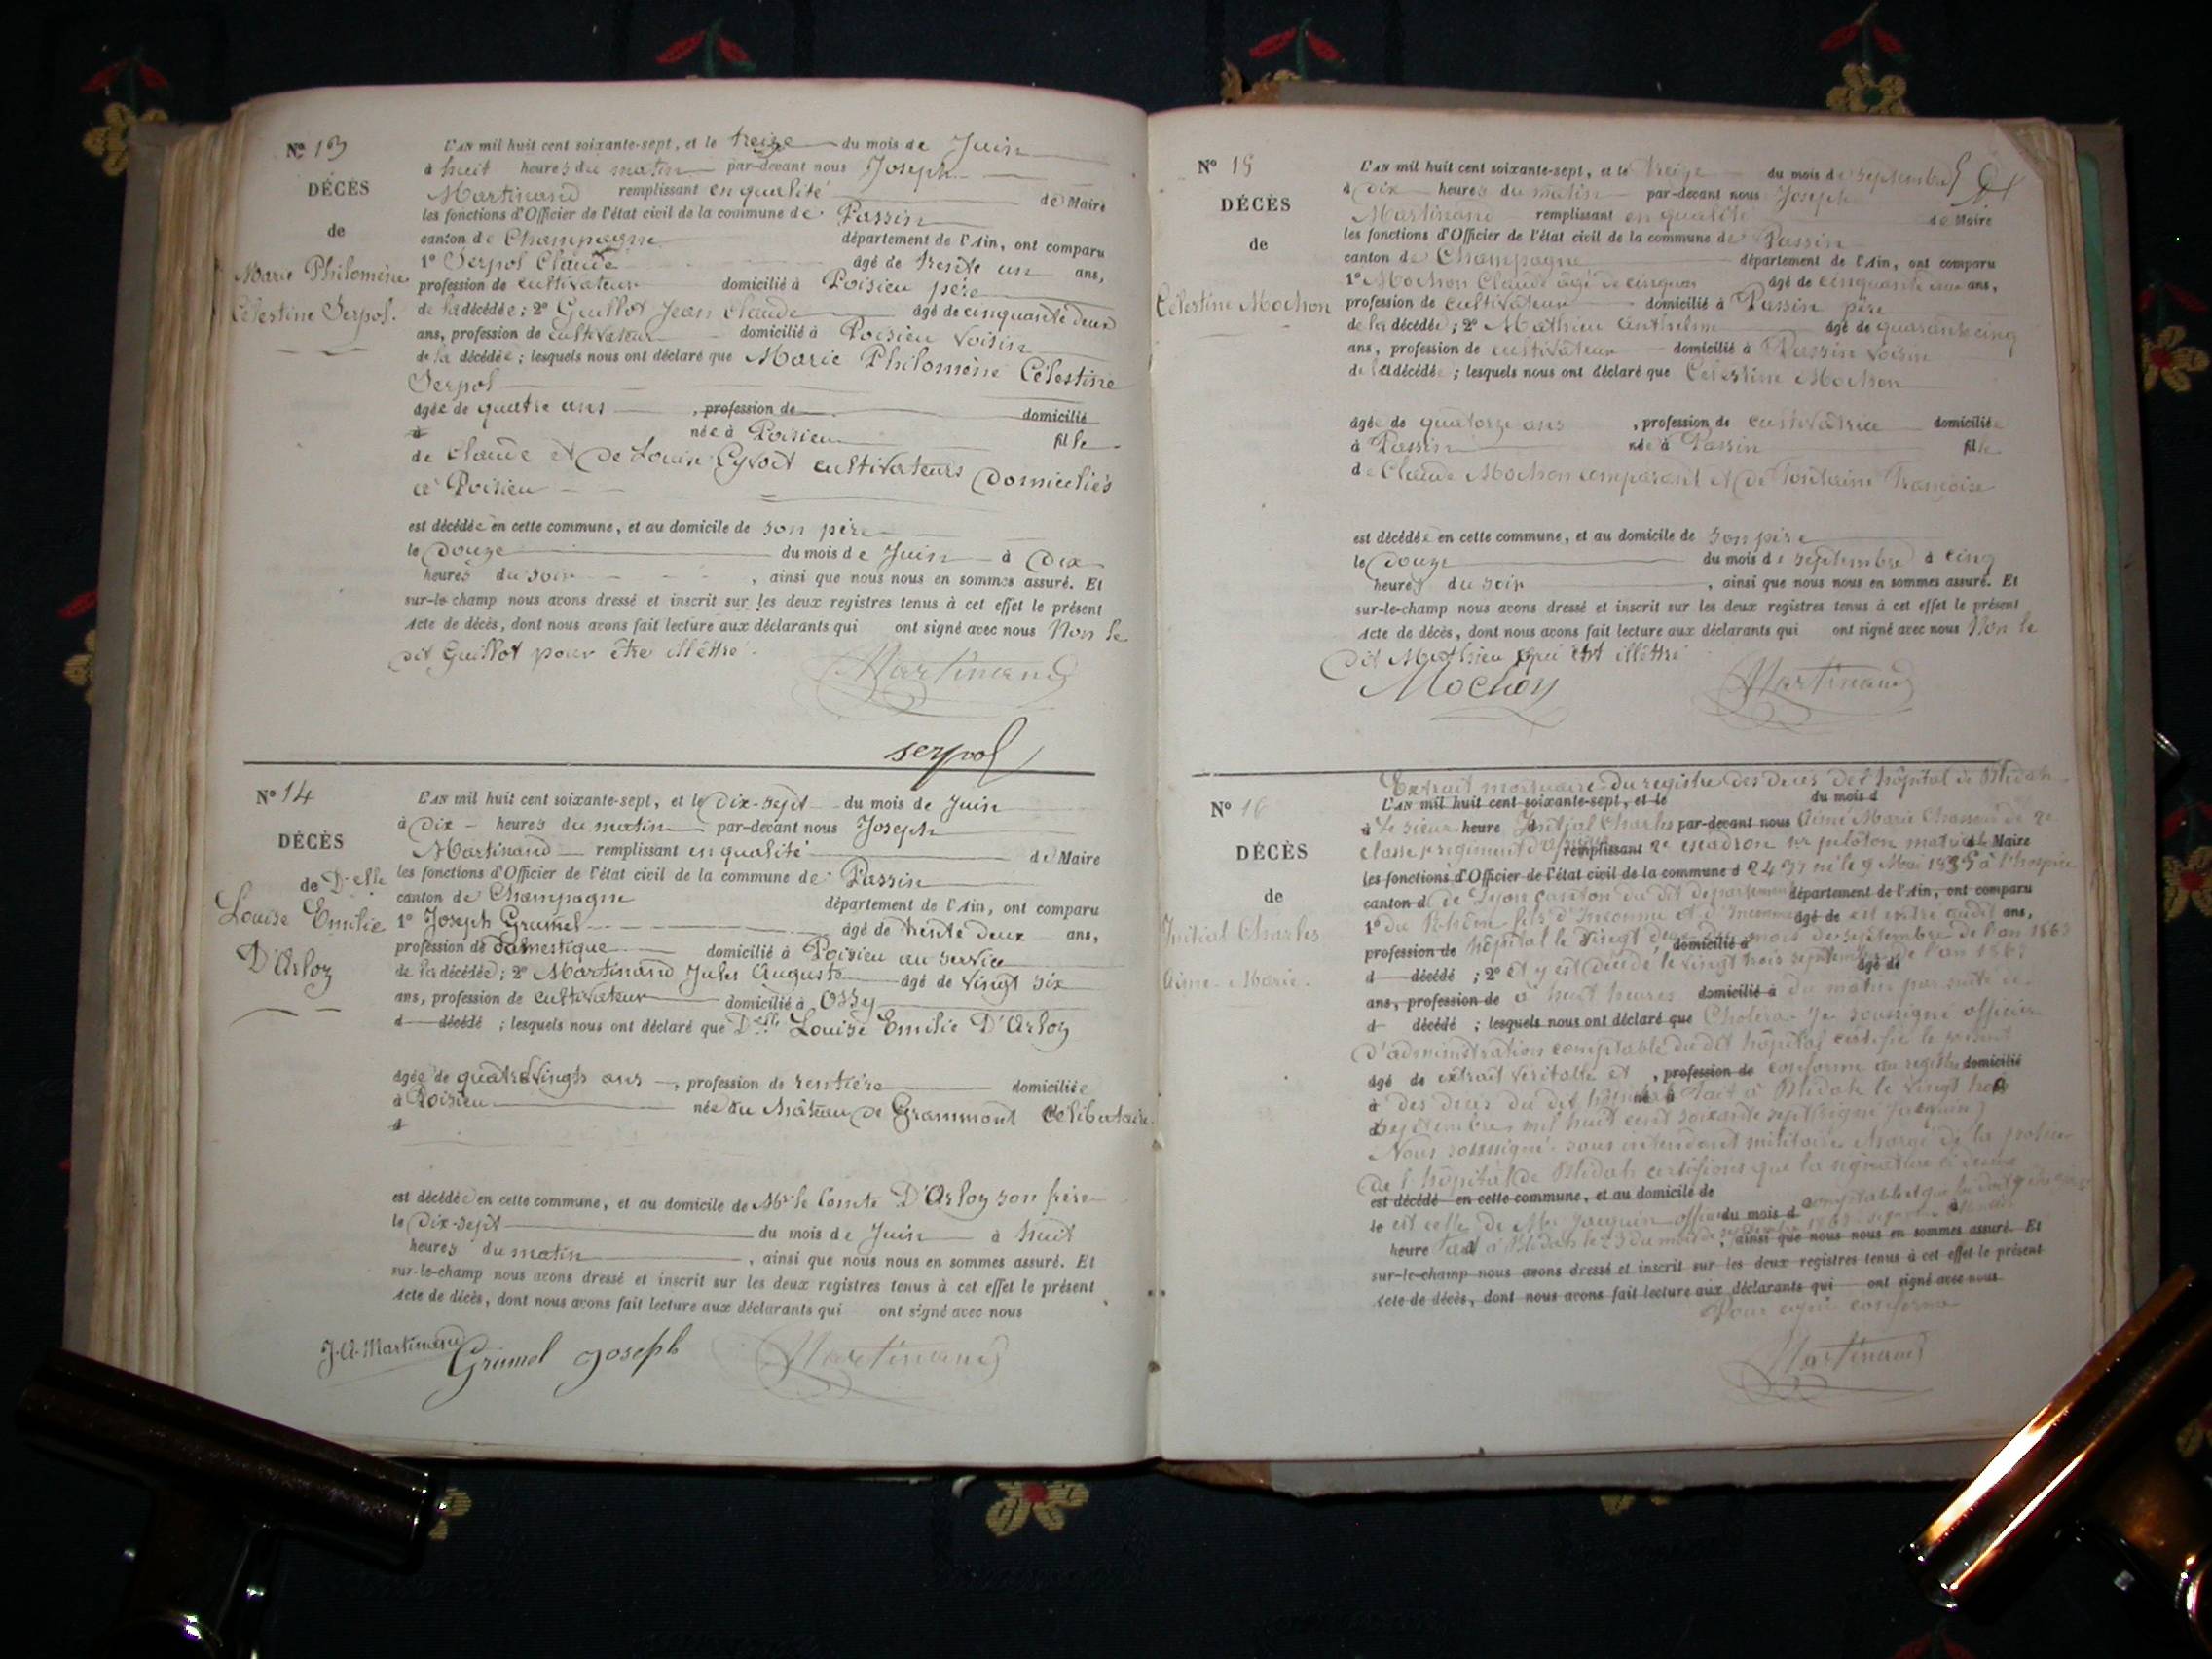 Nº 13
DÉCÈS
de
Marie Philomène
Célestine Serpol.
L'AN mil huit cent soixante-sept, et le treize du mois de Juin
à huit heures du matin par-devant nous Joseph
Martinand remplissant en qualité de Maire
les fonctions d'Officier de l'état civil de la commune de Passin
canton de Champagne département de l'Ain, ont comparu
1º Serpol Claude âgé de trente un ans,
profession de cultivateur domicilié à Poisieu père
de la décédée; 2º Guillot Jean Claude âgé de cinquante deux
ans, profession de cultivateur domicilié à Poisieu voisin
de la décédée; lesquels nous ont déclaré que Marie Philomène Célestine
Serpol
âgée de quatre ans, profession de domicilié
à née à Poisieu fille
de Claude et de Louise cultivateurs domiciliés
à Poisieu
est décédée en cette commune, et au domicile de son père
le douze du mois de Juin à dix
heures du soir, ainsi que nous nous en sommes assuré. Et
sur-le-champ nous avons dressé et inscrit sur les deux registres tenus à cet effet le présent
Acte de décès, dont nous avons fait lecture aux déclarants qui ont signé avec nous Non le
dit Guillot pour être illétré.
Martinand
serpol
Nº 14
DÉCÈS
de Delle
Louise Emilie
D'Arloz
L'AN mil huit cent soixante-sept, et le dix-sept du mois de Juin
à dix heures du matin par-devant nous Joseph
Martinand remplissant en qualité de Maire
les fonctions d'Officier de l'état civil de la commune de Passin
canton de Champagne département de l'Ain, ont comparu
1º Joseph Grumel âgé de trente deux ans,
profession de domestique domicilié à Poisieu au service
de la décédée; 2º Martinand Jules Auguste âgé de vingt six
ans, profession de cultivateur domicilié à Ossy
d décédé; lesquels nous ont déclaré que Delle Louise Emilie D'Arloz
âgée de quatre vingts ans, profession de rentière domiciliée
à Poisieu née au château de Grammont célibataire.
d
est décédée en cette commune, et au domicile de Mr le Comte D'Arloz son frère
le dix-sept du mois de Juin à huit
heures du matin, ainsi que nous nous en sommes assuré. Et
sur-le-champ nous avons dressé et inscrit sur les deux registres tenus à cet effet le présent
Acte de décès, dont nous avons fait lecture aux déclarants qui ont signé avec nous
J.A. Martinand Grumel joseph Martinand
Nº 15
DÉCÈS
de
Célestine Mochon
L'AN mil huit cent soixante-sept, et le treize du mois de Septembre
à dix heures du matin par-devant nous Joseph
Martinand remplissant en qualité de Maire
les fonctions d'Officier de l'état civil de la commune de Passin
canton de Champagne département de l'Ain, ont comparu
1º Mochon Claude âgé de cinquan âgé de cinquante ans,
profession de cultivateur domicilié à Passin père
de la décédée; 2º Mathieu Anthelme âgé de quarante cinq
ans, profession de cultivateur domicilié à Passin voisin
de la décédée; lesquels nous ont déclaré que Célestine Mochon
âgée de quatorze ans, profession de cultivatrice domiciliée
à Passin née à Passin fille
de Claude Mochon comparant et de Fontaine Françoise
est décédée en cette commune, et au domicile de son père
le douze du mois de septembre à cinq
heures du soir, ainsi que nous nous en sommes assuré. Et
sur-le-champ nous avons dressé et inscrit sur les deux registres tenus à cet effet le présent
Acte de décès, dont nous avons fait lecture aux déclarants qui ont signé avec nous Non le
dit Mathieu qui est illétré
Mochon Martinand
Extrait mortuaire du registre des décès de l'hôpital de Blidah
Nº 16
DÉCÈS
de
Initial Charles
Aimé-Marie.
L'AN mil huit cent soixante-sept, et le du mois d
à Le sieur heure Initial Charles par-devant nous Aimé Marie Chasseur de 2e
classe remplissant 2e escadron 1er peloton de Maire
les fonctions d'Officier de l'état civil de la commune d né le 9 Mai à l'hospice
canton d de Lyon canton du dit département département de l'Ain, ont comparu
1º du Rhône fils d'Inconnu et d'Inconnue âgé de est entré audit ans,
profession de hôpital le vingt deux du mois domicilié à de septembre de l'an
d décédé; 2º et y est décédé le vingt trois septembre âgé de de l'an
ans, profession de à huit heures domicilié à du matin par suite de
d décédé; lesquels nous ont déclaré que Choléra. Je soussigné officier
d'administration comptable du dit hôpital certifie le présent
âgé de extrait véritable et, profession de conforme au registre domicilié
à des décès du dit hôpital né à Fait à Blidah le vingt trois
septembre mil huit cent soixante sept signé Jacquin
Nous soussigné sous intendant militaire chargé de la police
de l'hôpital de Blidah certifions que la signature ci dessus
est décédé en cette commune, et au domicile de
le est celle de Mr Jacquin du mois d comptable et que foi doit y être
heure Fait à Blidah le 23 du mois de septembre, ainsi que nous nous en sommes assuré. Et
sur-le-champ nous avons dressé et inscrit sur les deux registres tenus à cet effet le présent
Acte de décès, dont nous avons fait lecture aux déclarants qui ont signé avec nous
Pour copie conforme
Martinand